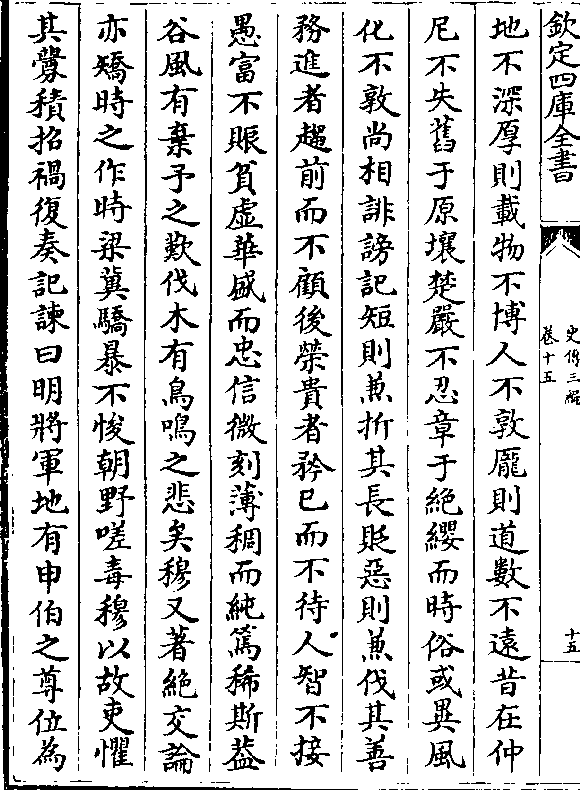 欽定四庫全書
史傳三編
卷十五
十五
地不深厚則載物不博人不敦厖則道數不遠昔在仲
尼不失舊于原壤楚嚴不忍章于絶纓而時俗或異風
化不敦尚相誹謗記短則兼折其長貶惡則兼伐其善
務進者趨前而不顧後榮貴者矜已而不待人智不接
愚富不賑貧虛華盛而忠信微刻薄稠而純篤稀斯葢
谷風有棄予之歎伐木有鳥鳴之悲矣穆又著絶交論
亦矯時之作時梁冀驕暴不悛朝野嗟毒穆以故吏懼
其釁積招禍復奏記諫曰明將軍地有申伯之尊位為